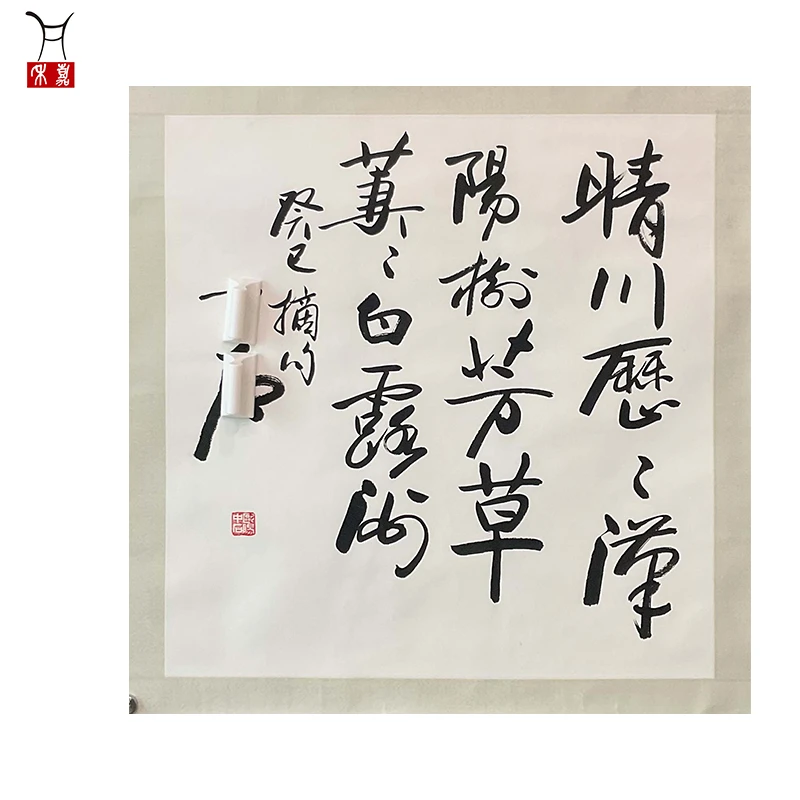 晴川歷〻漢
陽樹芳草
萋〻白露洲
癸巳摘句